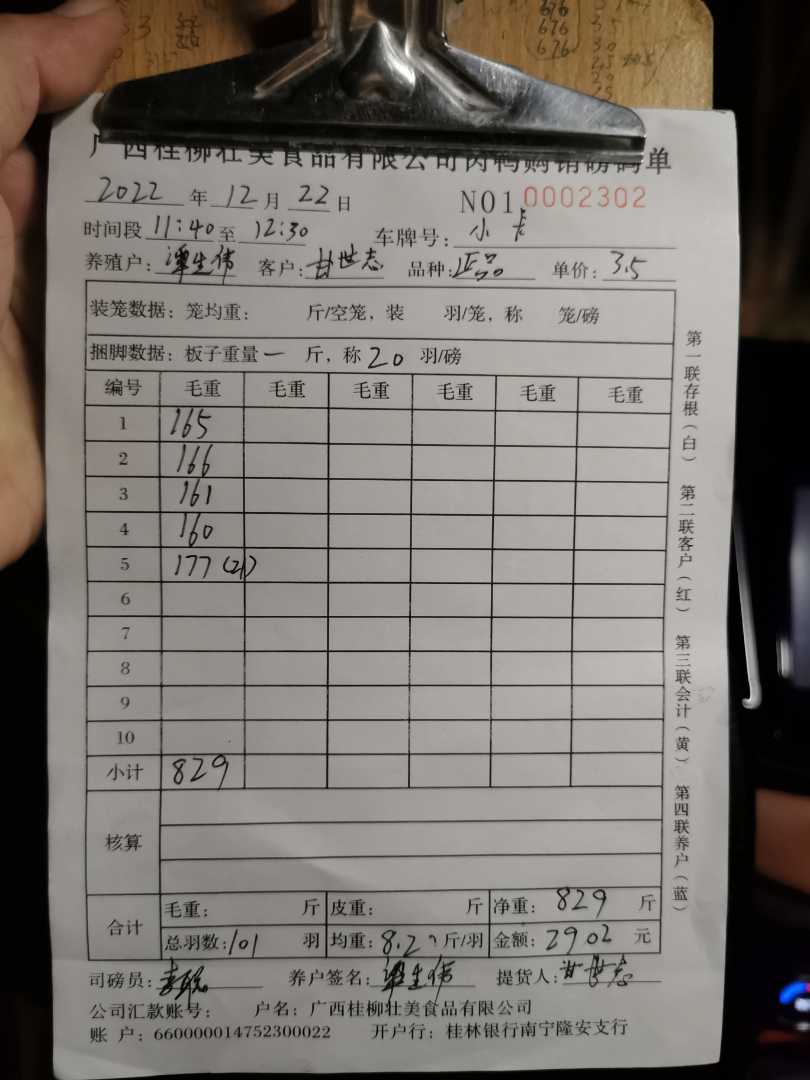 广西桂柳壮美食品有限公司肉鸭购销磅码单
2022 年 12 月 22 日 NO1 0002302
时间段 11:40 至 12:30 车牌号: 小卡
养殖户: 生伟 客户: 甘世志 品种: 正品 单价: 3.5
装笼数据: 笼均重: 斤/空笼, 装 羽/笼, 称 笼/磅
捆脚数据: 板子重量 一 斤, 称 20 羽/磅
编号 毛重 毛重 毛重 毛重 毛重 毛重
1 165
2 166
3 161
4 160
5 177 (21)
6
7
8
9
10
小计 829
核算
合计 毛重: 斤 皮重: 斤 净重: 829 斤
总羽数: 101 羽 均重: 8.2 斤/羽 金额: 2902 元
司磅员: 养户签名: 生伟 提货人: 甘世志
公司汇款账号: 户名: 广西桂柳壮美食品有限公司
账 户: 660000014752300022 开户行: 桂林银行南宁隆安支行
第一联存根(白) 第二联客户(红) 第三联会计(黄) 第四联养户(蓝)
676
676
676